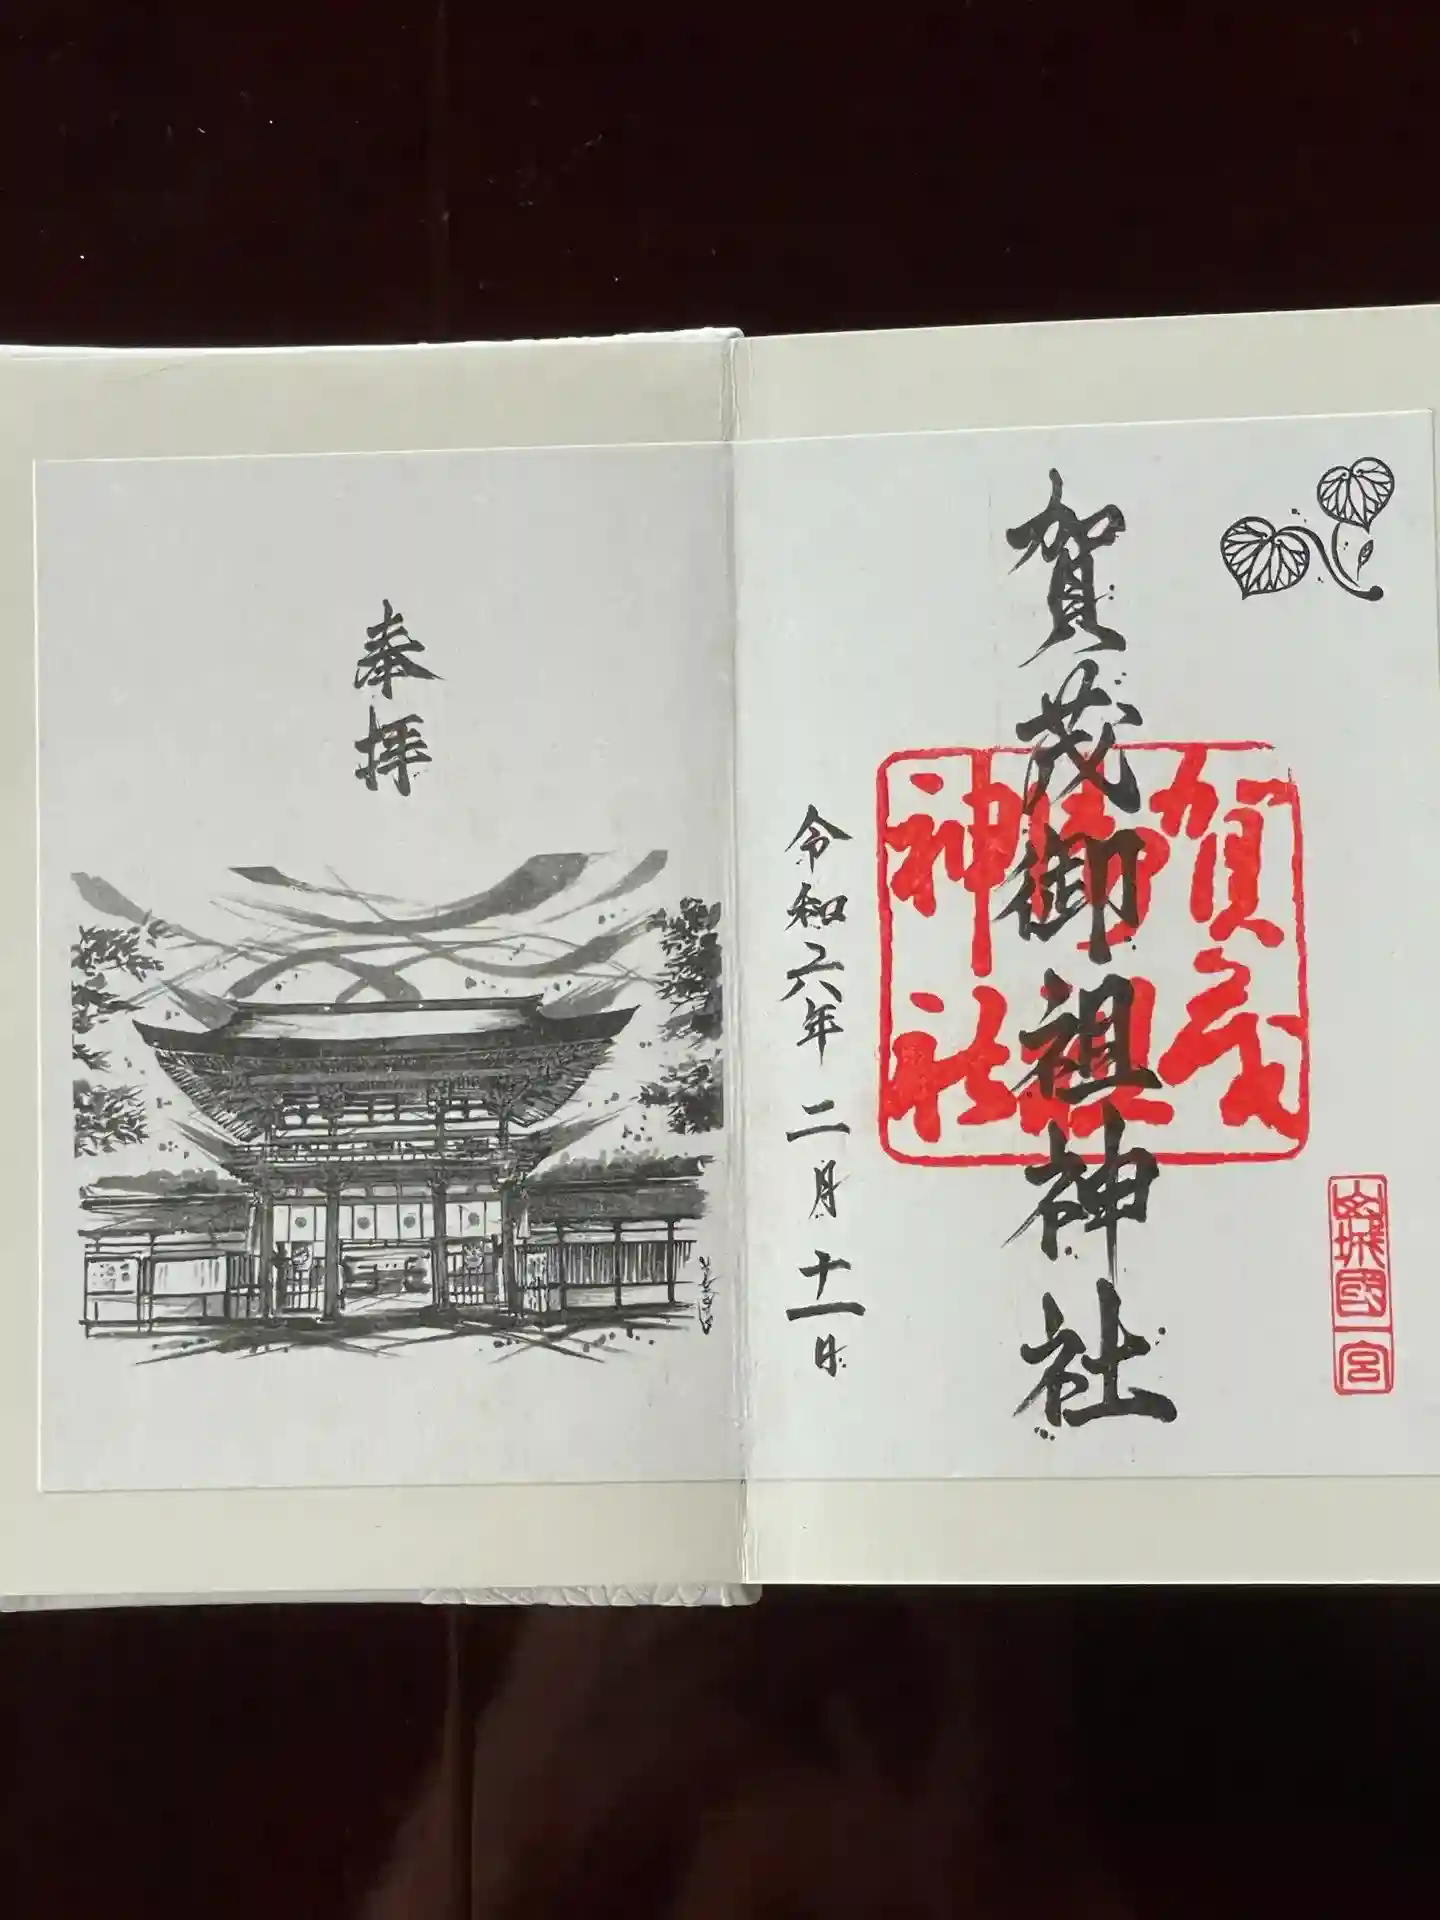 山城國一宮
賀茂御祖神社
賀茂
御祖
神社
令和六年 二月 十一日
奉拝